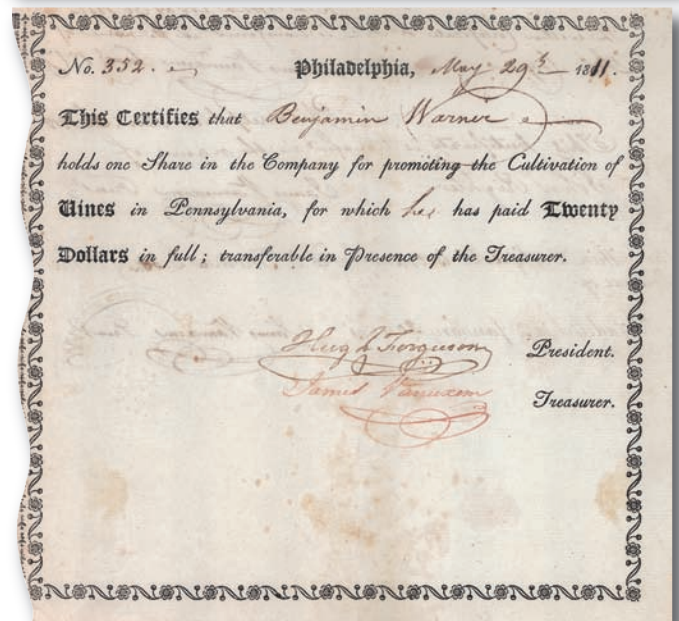 No. 352. Philadelphia, May 29th 1811.
This Certifies that Benjamin Warner
holds one Share in the Company for promoting the Cultivation of
Vines in Pennsylvania, for which he has paid Twenty
Dollars in full; transferable in Presence of the Treasurer.
Hugh Ferguson President.
James Vanuxem Treasurer.